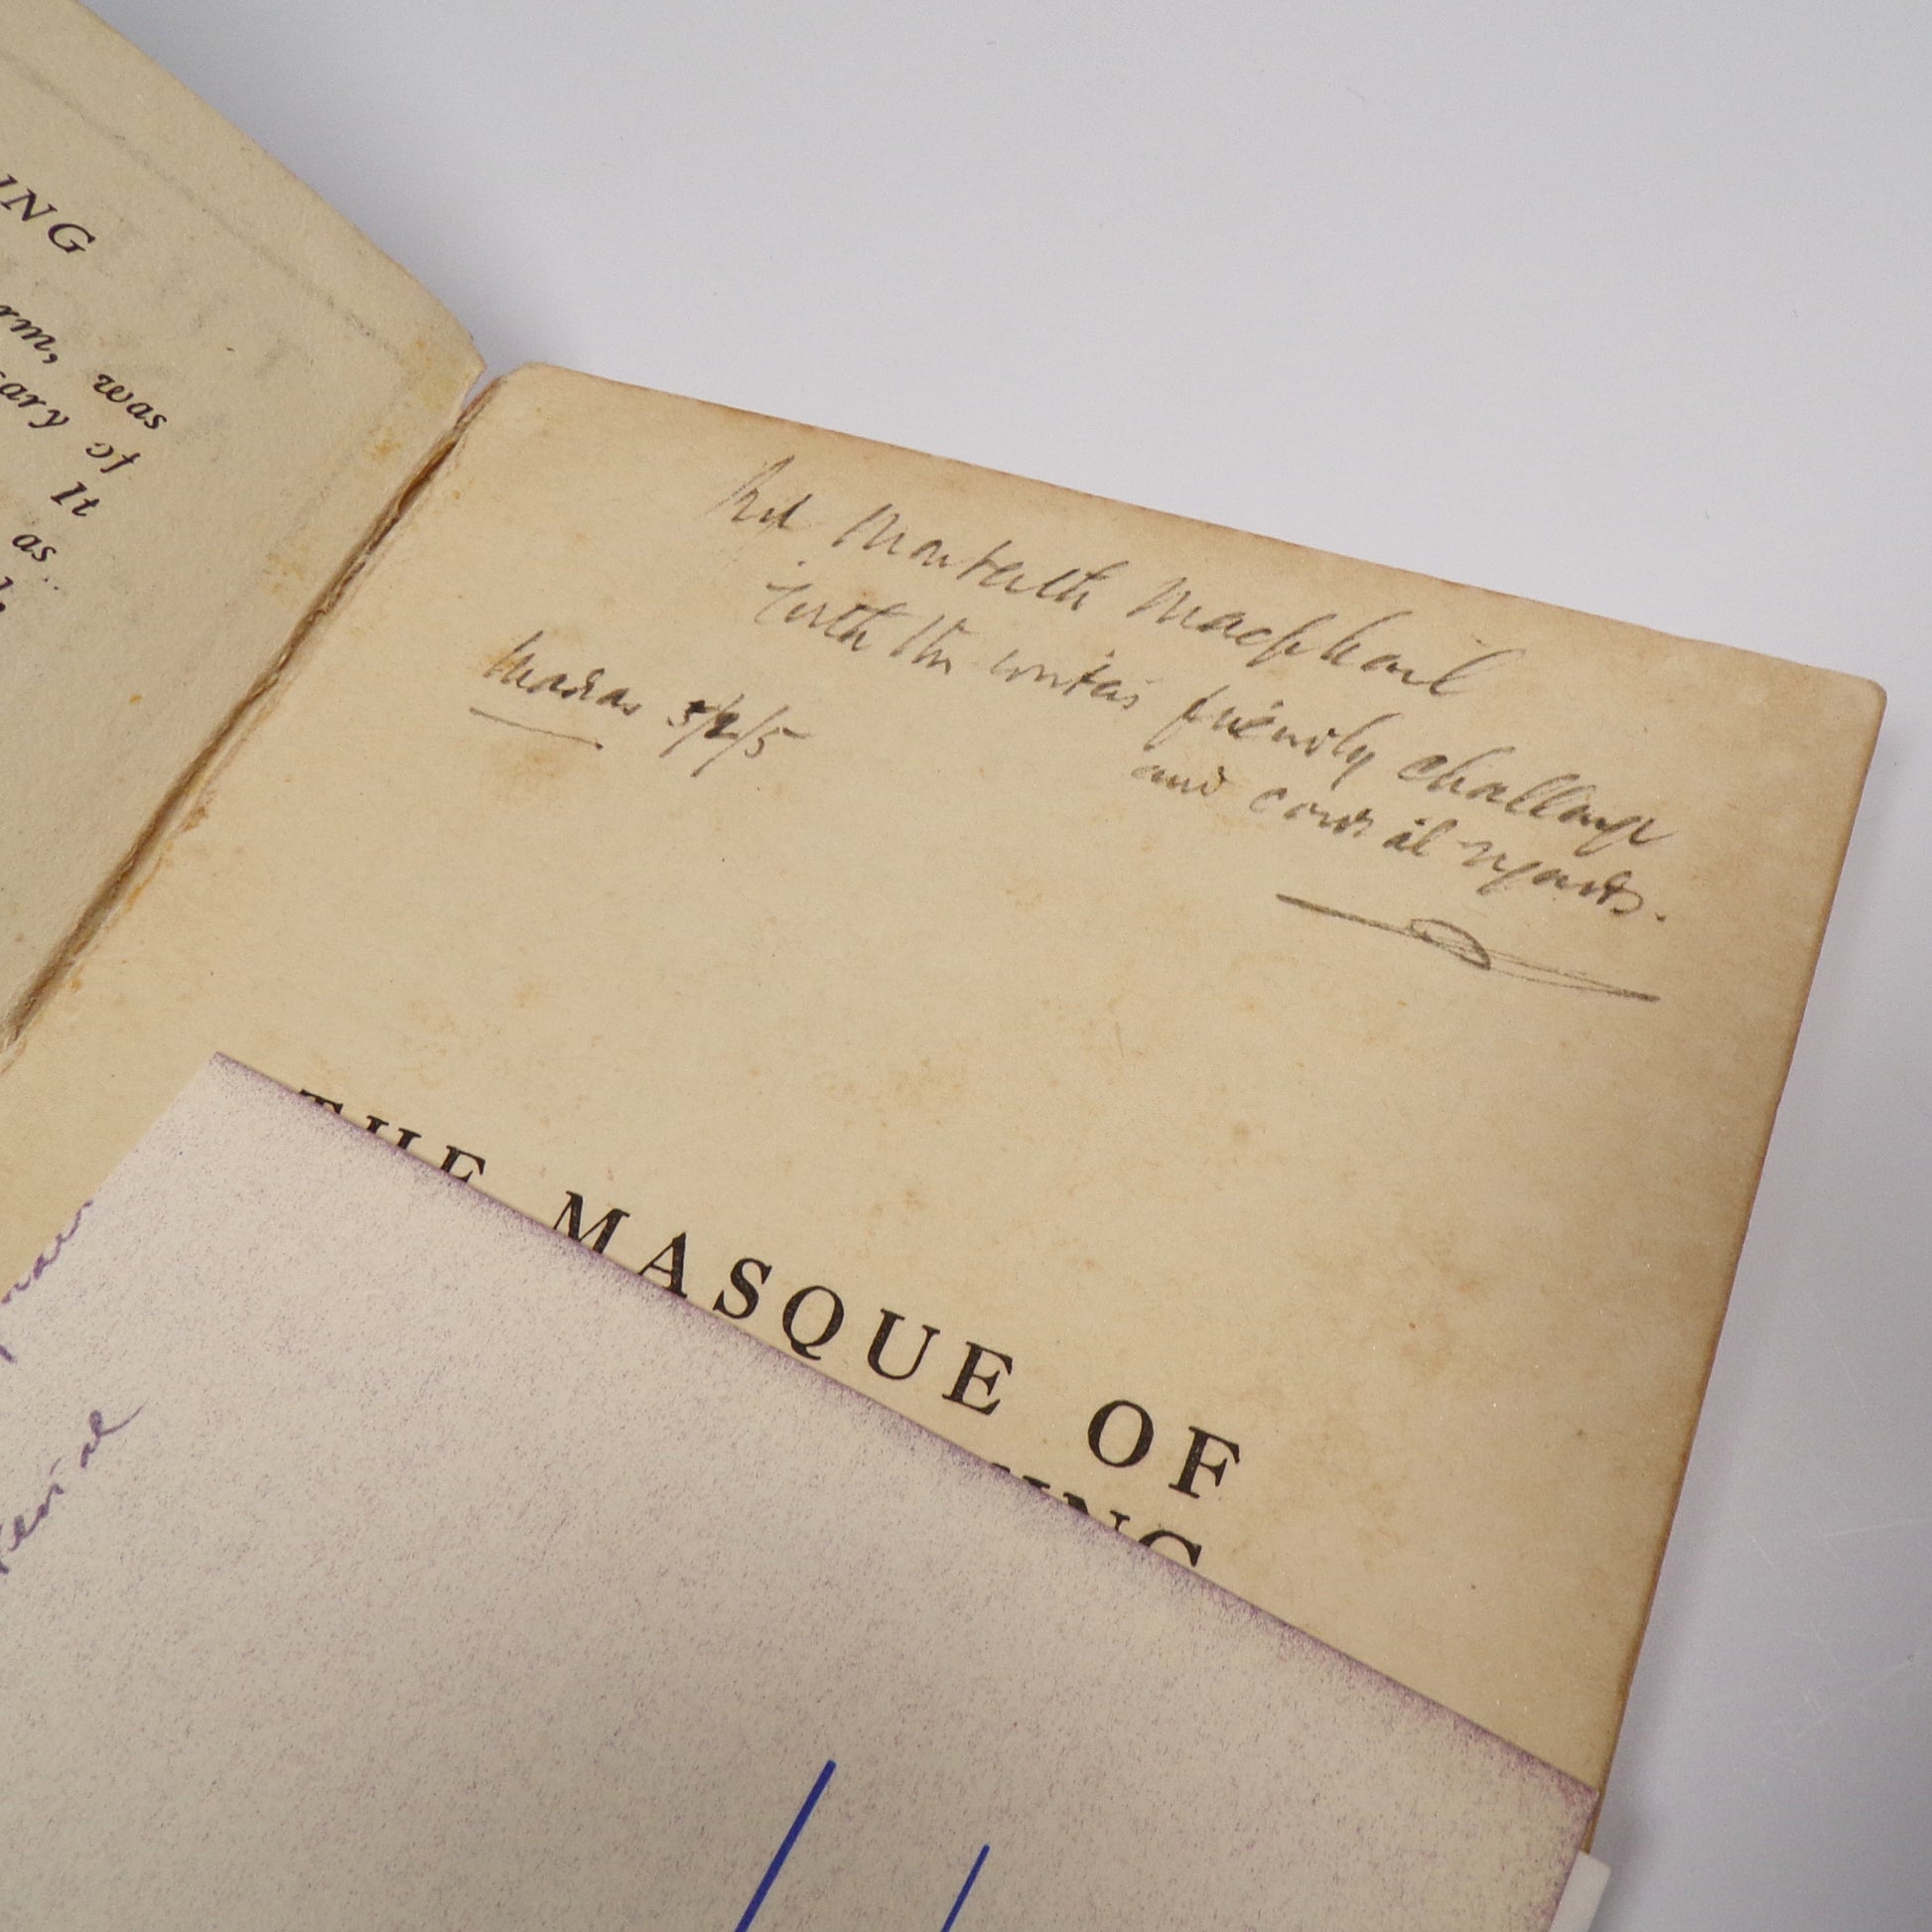 ING
rm, was
ary of
It
as
Monteith Macphail
with the writer's friendly challenge
and cordial regards.
Madras 5/2/5
THE MASQUE OF
ING